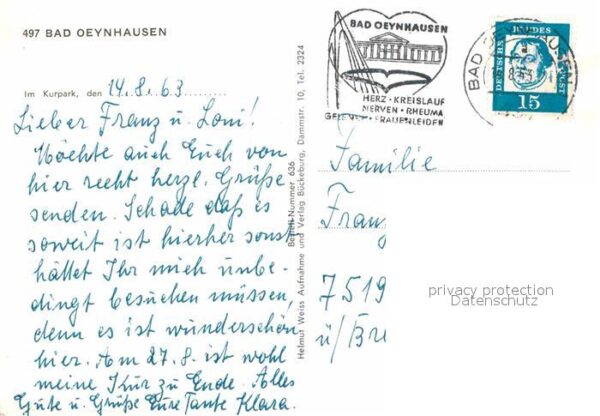 497 BAD OEYNHAUSEN
Im Kurpark, den 14.8.63
Lieber Franz u. Loni!
Möchte auch Euch von
hier recht herzl. Grüße
senden. Schade daß es
soweit ist hierher sonst
hättet Ihr mich unbe-
dingt besuchen müssen,
denn es ist wunderschön
hier. Am 27.8. ist wohl
meine Kur zu Ende. Alles
Gute u. Grüße Eure Tante Klara.
Bestell-Nummer 636
Helmut Weiss Aufnahme und Verlag Bückeburg, Dammstr. 10, Tel. 2324
BAD OEYNHAUSEN
HERZ · KREISLAUF
NERVEN · RHEUMA
GELENKE · FRAUENLEIDEN
BAD OEYNHAUSEN
DEUTSCHE BUNDESPOST
15
Familie
Franz
7519
ü/Bre
privacy protection
Datenschutz